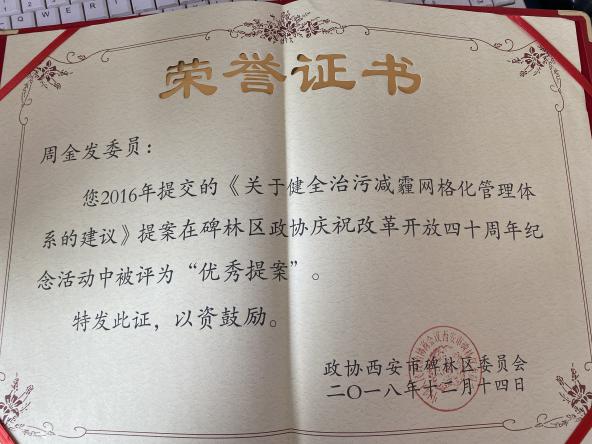 荣誉证书
周金发委员：
您2016年提交的《关于健全治污减霾网格化管理体
系的建议》提案在碑林区政协庆祝改革开放四十周年纪
念活动中被评为“优秀提案”。
特发此证，以资鼓励。
政协西安市碑林区委员会
二〇一八年十二月十四日